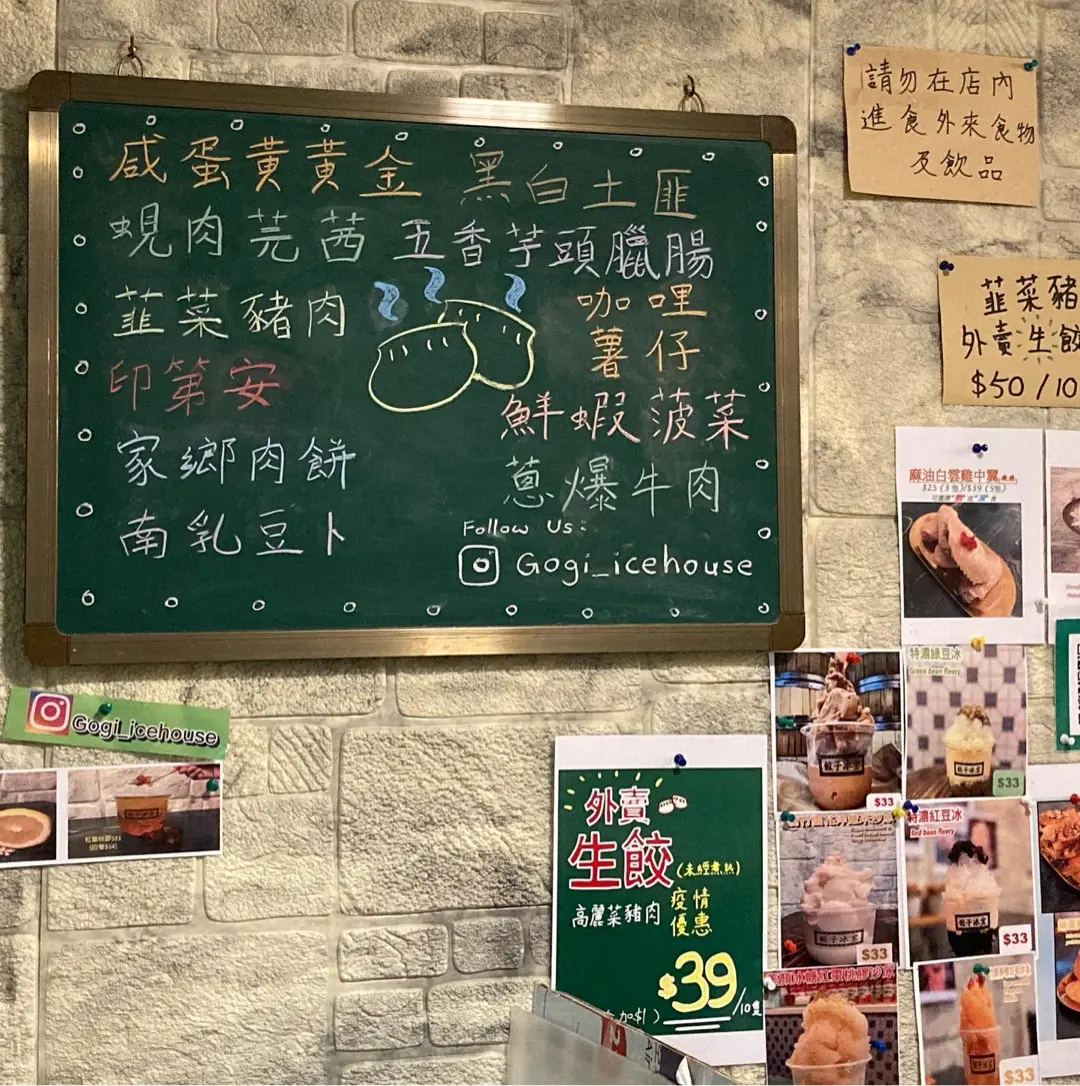 咸蛋黃黃金
黑白土匪
蜆肉芫茜
五香芋頭臘腸
韮菜豬肉
咖哩
薯仔
印第安
鮮蝦菠菜
家鄉肉餅
蔥爆牛肉
南乳豆卜
Follow Us:
Gogi_icehouse
請勿在店內
進食外來食物
及飲品
韮菜豬
外賣生餃
$50/10
麻油白雲雞中翼
$25(3隻)/$39(5隻)
Gogi_icehouse
特濃綠豆冰
Green bean fleecy
餃子冰室
$33
餃子冰室
$33
外賣
生餃
(未經煮熟)
高麗菜豬肉
疫情
優惠
$39/10隻
加$1)
特濃紅豆冰
Red bean fleecy
餃子冰室
$33
餃子冰室
$33
$33